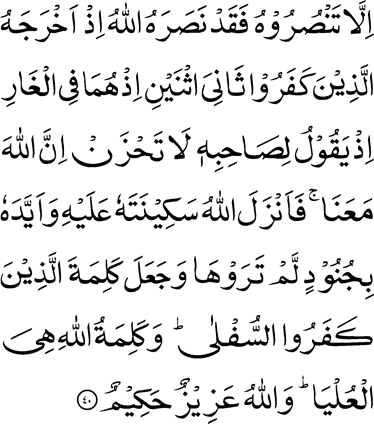 اِلَّا تَنْصُرُوْهُ فَقَدْ نَصَرَهُ اللّٰهُ اِذْ اَخْرَجَهُ
الَّذِيْنَ كَفَرُوْا ثَانِیَ اثْنَيْنِ اِذْ هُمَا فِی الْغَارِ
اِذْ يَقُوْلُ لِصَاحِبِهٖ لَا تَحْزَنْ اِنَّ اللّٰهَ
مَعَنَا ۚ فَاَنْزَلَ اللّٰهُ سَكِيْنَتَهٗ عَلَيْهِ وَ اَيَّدَهٗ
بِجُنُوْدٍ لَّمْ تَرَوْهَا وَ جَعَلَ كَلِمَةَ الَّذِيْنَ
كَفَرُوا السُّفْلٰی ؕ وَ كَلِمَةُ اللّٰهِ هِیَ
الْعُلْيَا ؕ وَ اللّٰهُ عَزِيْزٌ حَكِيْمٌ ۝۴۰